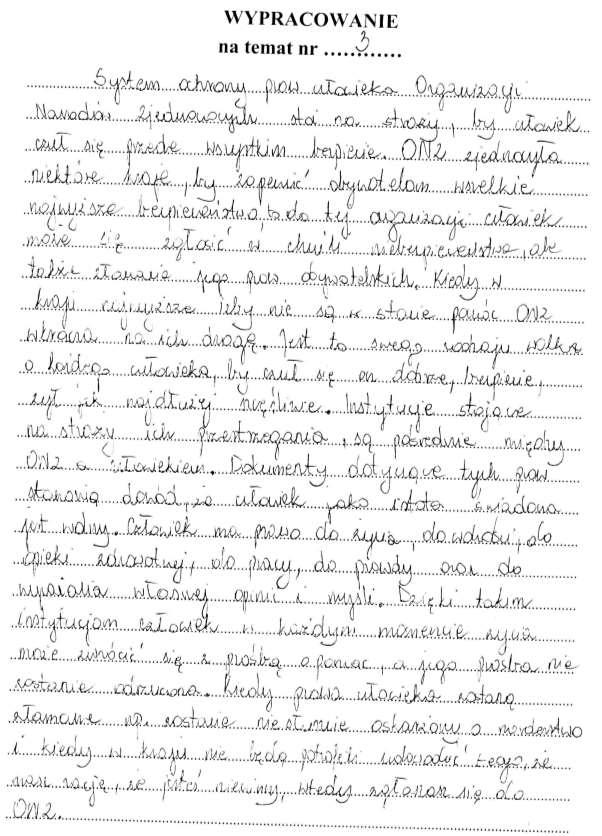 WYPRACOWANIE
na temat nr ......3......
System ochrony praw człowieka Organizacji
Narodów Zjednoczonych stoi na straży, by człowiek
czuł się przede wszystkim bezpiecznie. ONZ zjednoczyła
niektóre kraje, by zapewnić obywatelom wszelkie
najwyższe bezpieczeństwo, to do tej organizacji człowiek
może się zgłosić w chwili niebezpieczeństwa, ale
także złamania jego praw obywatelskich. Kiedy w
kraji najwyższe Izby nie są w stanie pomóc ONZ
wkracza na ich drogę. Jest to swego rodzaju walka
o każdego człowieka, by czuł się on dobrze, bezpiecznie,
żył jak najdłużej szczęśliwie. Instytucje stojące
na straży ich przestrzegania, są pośrednie między
ONZ a człowiekiem. Dokumenty dotyczące tych praw
stanowią dowód, że człowiek jako istota świadoma
jest wolny. Człowiek ma prawo do życia, do wolności, do
opieki zdrowotnej, do pracy, do prawdy oraz do
wyrażania własnej opinii i myśli. Dzięki takim
instytucjom człowiek w każdym momencie życia
może zwrócić się z prośbą o pomoc, a jego prośba nie
zostanie odrzucona. Kiedy prawa człowieka zostaną
złamane np. zostanie niesłusznie oskarżony o morderstwo
i kiedy w kraju nie będą potrafili udowodnić tego, że
masz rację, że jesteś niewinny, wtedy zgłaszasz się do
ONZ.